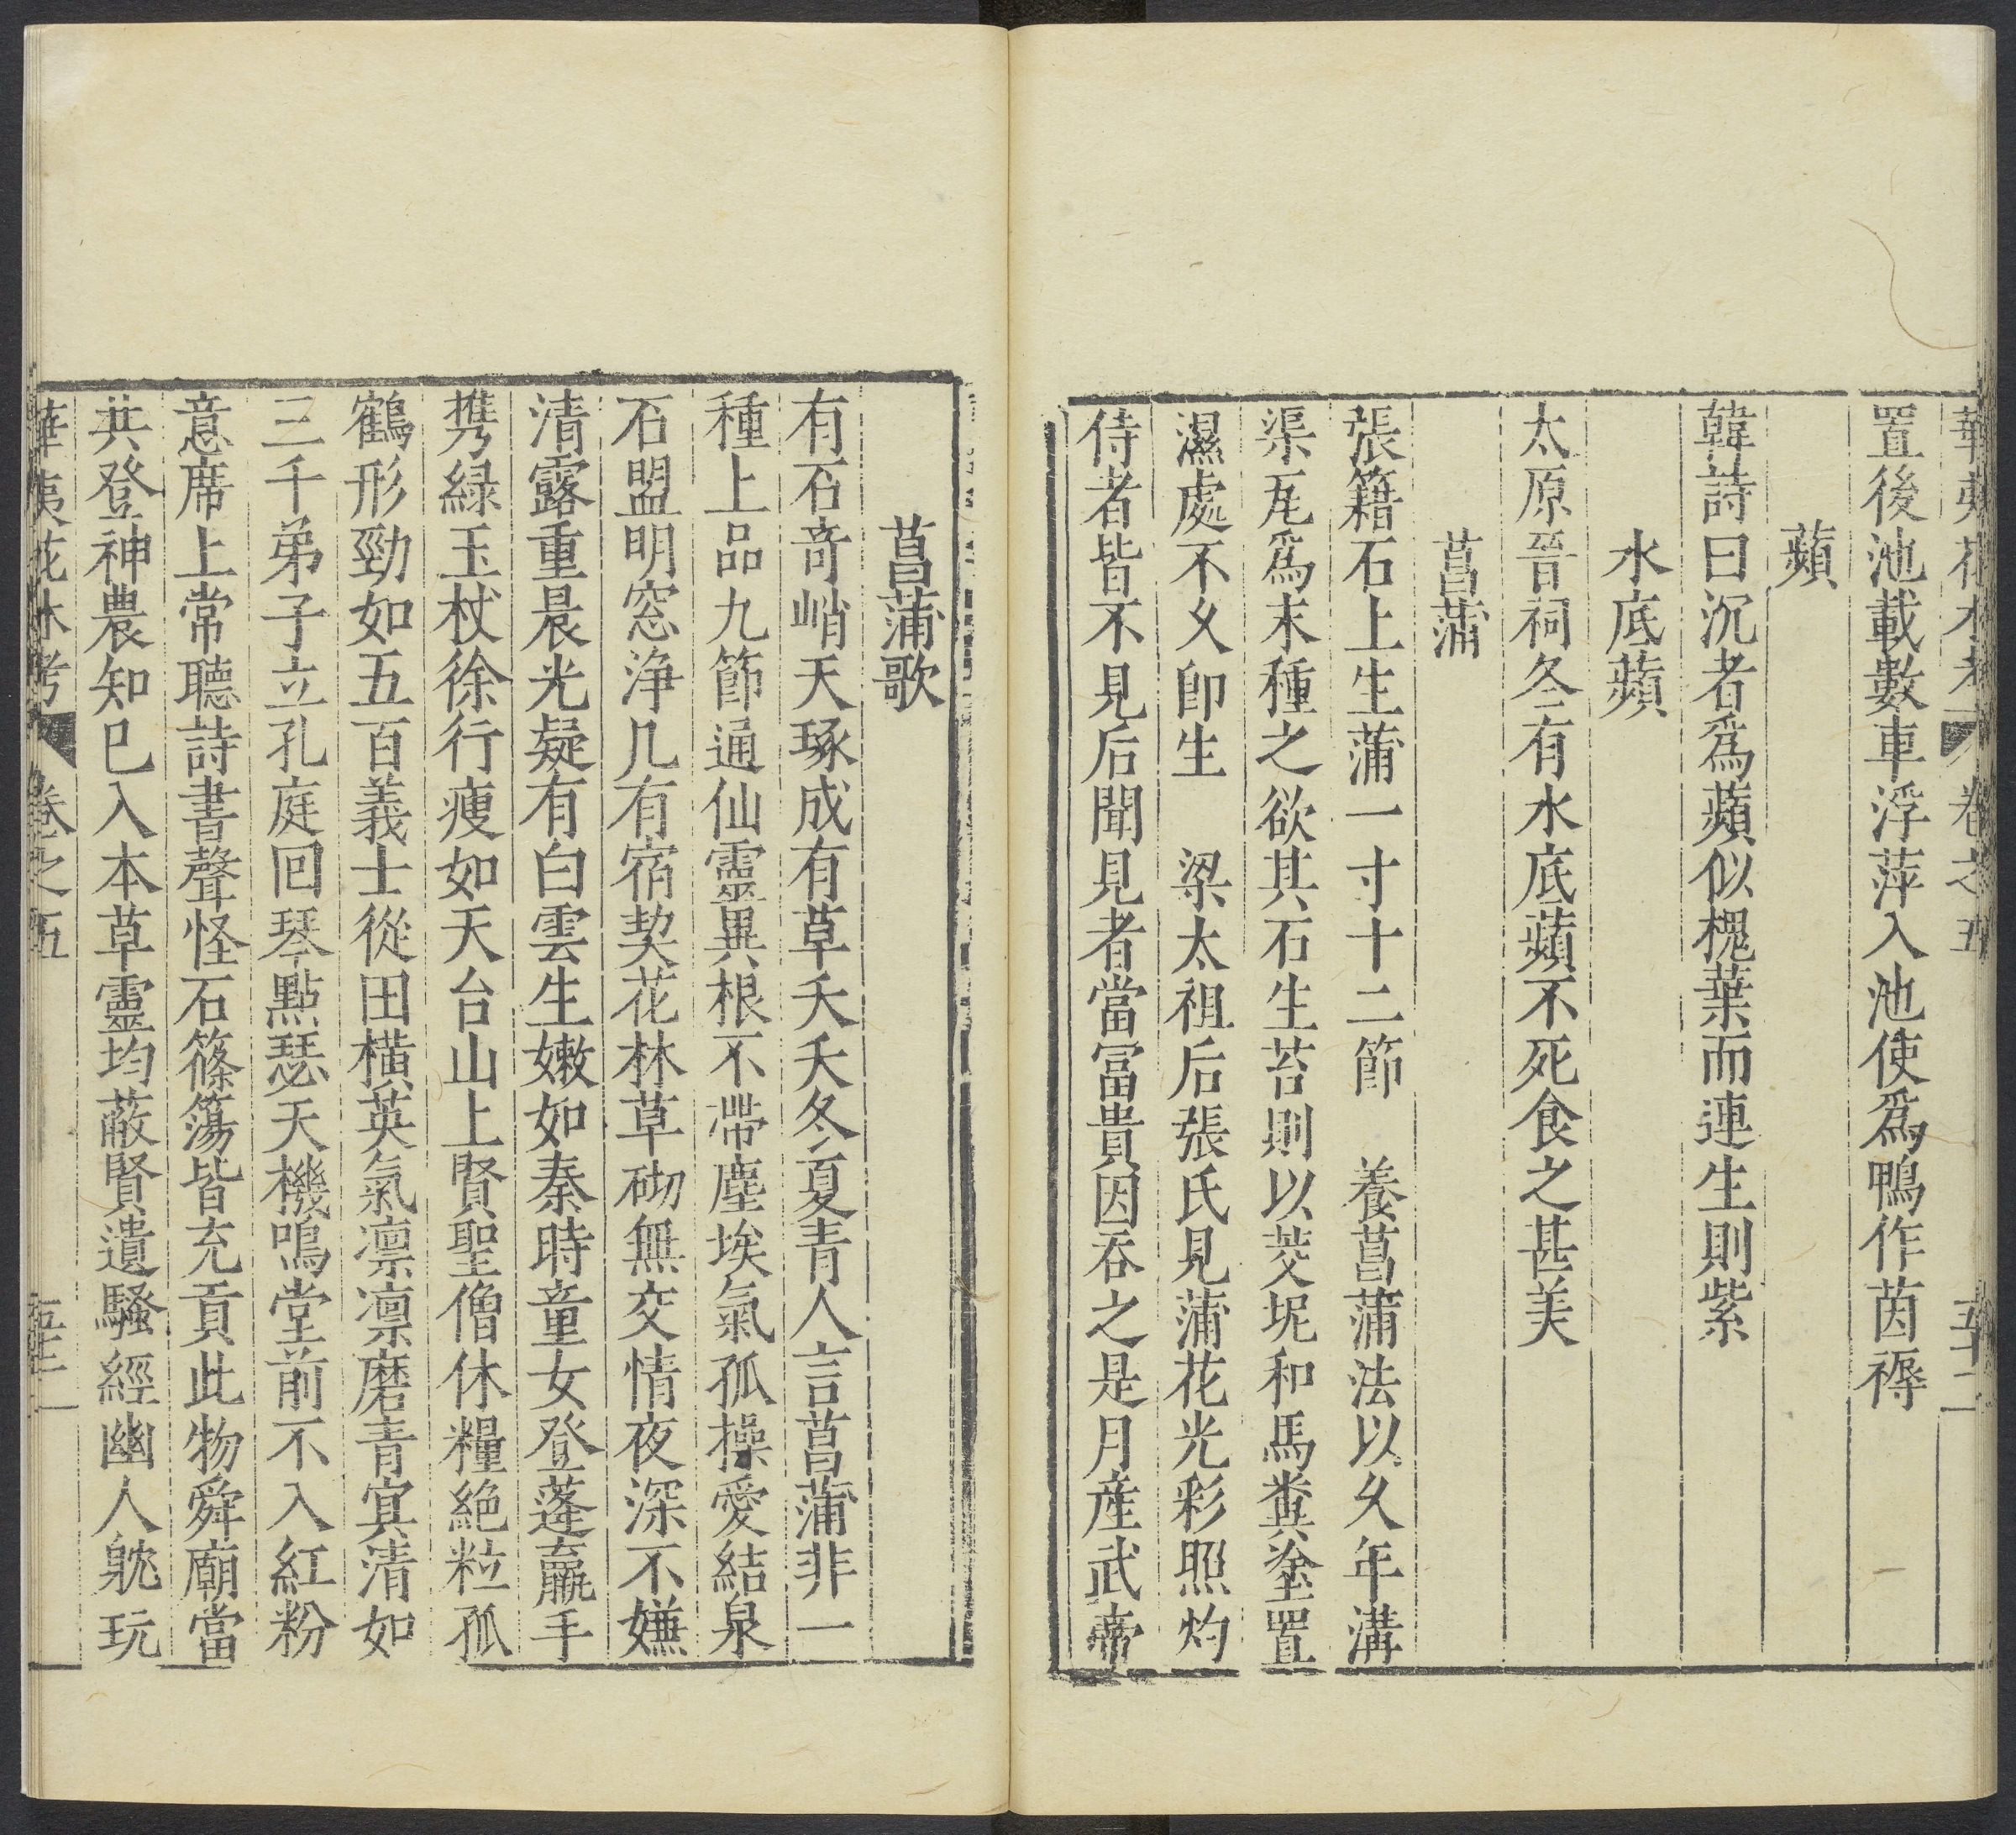 華夷花木考 卷之五 五十二
置後池載數車浮萍入池使爲鴨作茵褥
蘋
韓詩曰沉者爲蘋似槐葉而連生則紫
水底蘋
太原晉祠冬有水底蘋不死食之甚美
菖蒲
張籍石上生蒲一寸十二節 養菖蒲法以久年溝
渠瓦爲末種之欲其石生苔則以茭坭和馬糞塗置
濕處不久卽生 梁太祖后張氏見蒲花光彩照灼
侍者皆不見后聞見者當富貴因吞之是月產武帝
菖蒲歌
有石奇峭天琢成有草夭夭冬夏青人言菖蒲非一
種上品九節通仙靈異根不帶塵埃氣孤操愛結泉
石盟明窓浄几有宿契花林草砌無交情夜深不嫌
清露重晨光疑有白雲生嫩如秦時童女登蓬瀛手
携緑玉杖徐行瘦如天台山上賢聖僧休糧絕粒孤
鶴形勁如五百義士從田橫英氣凛凛磨青㝠清如
三千弟子立孔庭回琴點瑟天機鳴堂前不入紅粉
意席上常聽詩書聲怪石篠簜皆充貢此物舜廟當
共登神農知已入本草靈均蔽賢遺騷經幽人躭玩
華夷花木考 卷之五 五十二